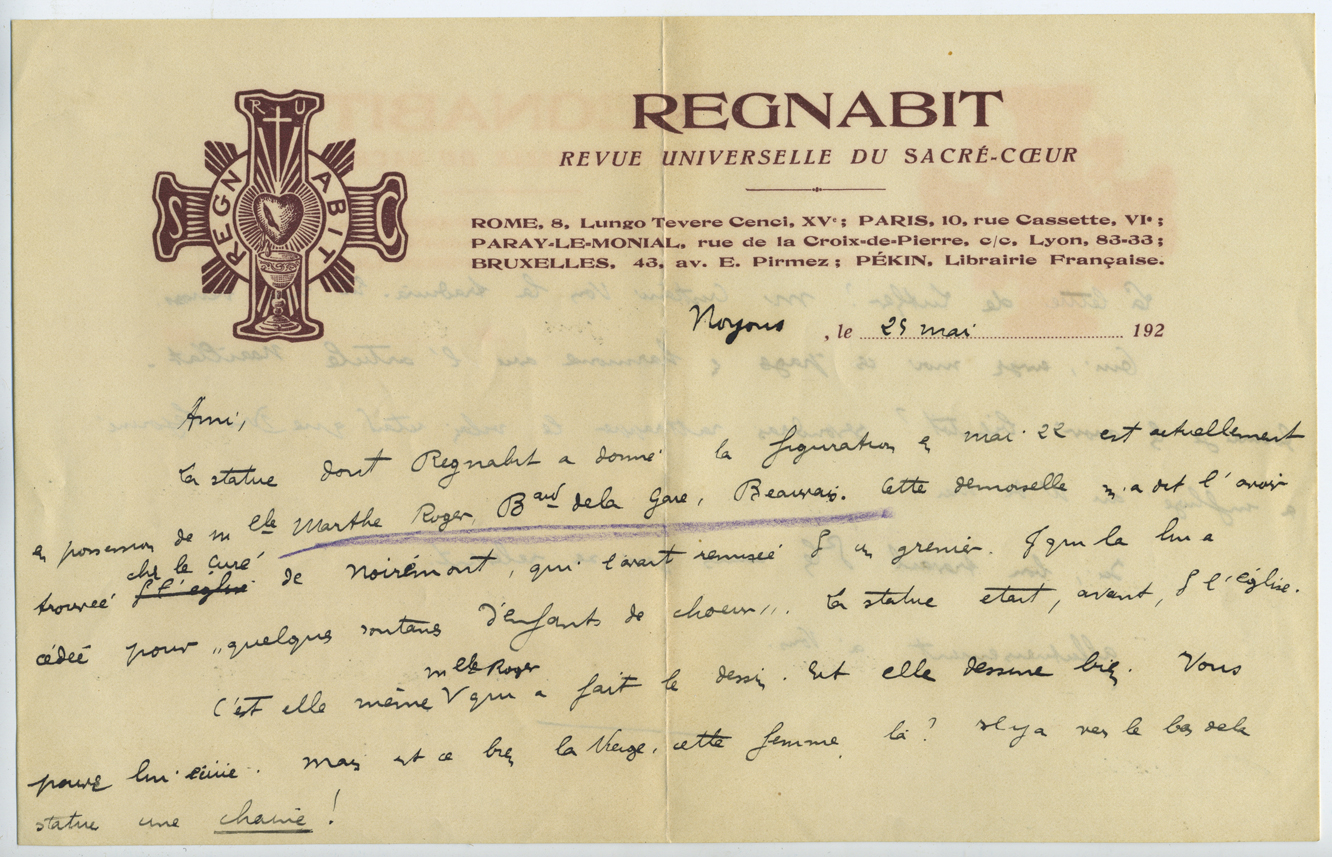 R U
S REGNABIT C
REGNABIT
REVUE UNIVERSELLE DU SACRÉ-CŒUR
ROME, 8, Lungo Tevere Cenci, XVe; PARIS, 10, rue Cassette, VIe;
PARAY-LE-MONIAL, rue de la Croix-de-Pierre, c/c, Lyon, 83-33;
BRUXELLES, 43, av. E. Pirmez; PÉKIN, Librairie Française.
, le 25 mai 192
Ami,
La statue dont Regnabit a donné la figuration en mai 22 est actuellement
en possession de Mlle Marthe Roger, Bard de la Gare, Beauvais. Cette demoiselle m'a dit l'avoir
trouvée chez le curé de Noirémont, qui l'avait remisée ds un grenier. Et qui la lui a
cédée pour „quelques soutanes d'enfants de chœur„. La statue était, avant, ds l'église.
C'est elle même V Mlle Roger qui a fait le dessin. Et elle dessine bien. Vous
pouvez lui écrire. Mais est ce bien la Vierge, cette femme là? Il y a vers le bas de la
statue une chaine!